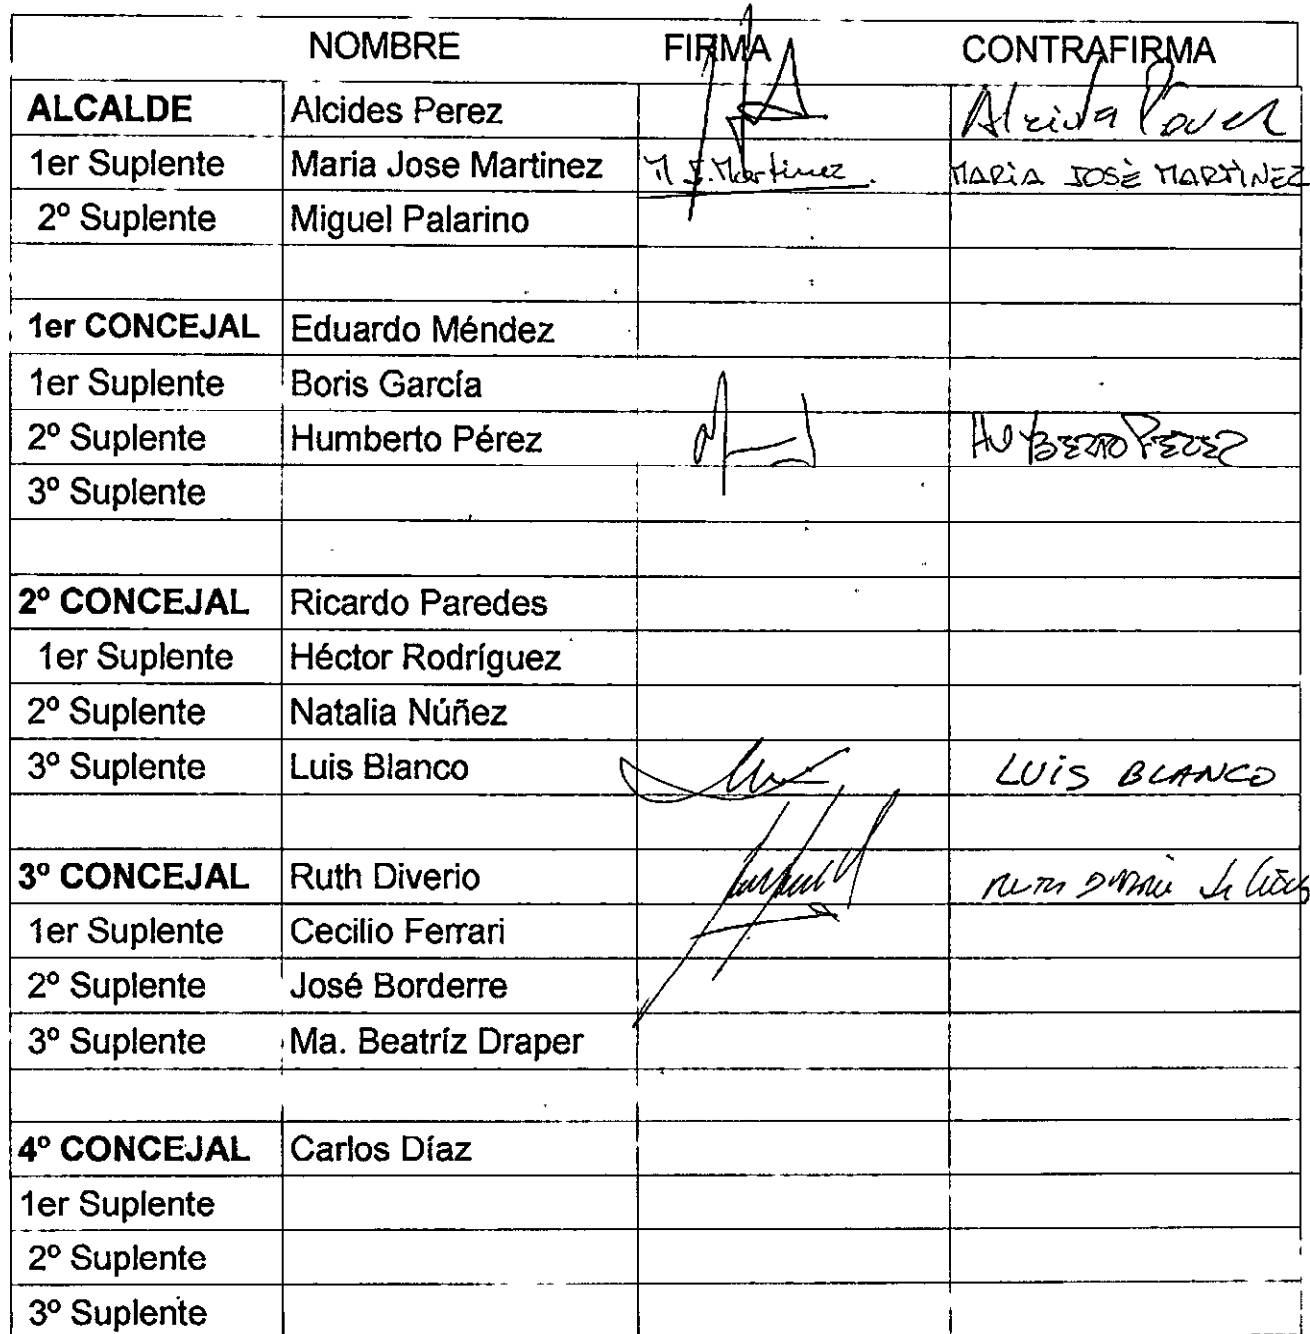 NOMBRE FIRMA CONTRAFIRMA
ALCALDE Alcides Perez
1er Suplente Maria Jose Martinez M J. Martinez. MARIA JOSÈ MARTINEZ
2º Suplente Miguel Palarino
1er CONCEJAL Eduardo Méndez
1er Suplente Boris García
2º Suplente Humberto Pérez HUMBERTO PEREZ
3º Suplente
2º CONCEJAL Ricardo Paredes
1er Suplente Héctor Rodríguez
2º Suplente Natalia Núñez
3º Suplente Luis Blanco LUIS BLANCO
3º CONCEJAL Ruth Diverio
1er Suplente Cecilio Ferrari
2º Suplente José Borderre
3º Suplente Ma. Beatríz Draper
4º CONCEJAL Carlos Díaz
1er Suplente
2º Suplente
3º Suplente